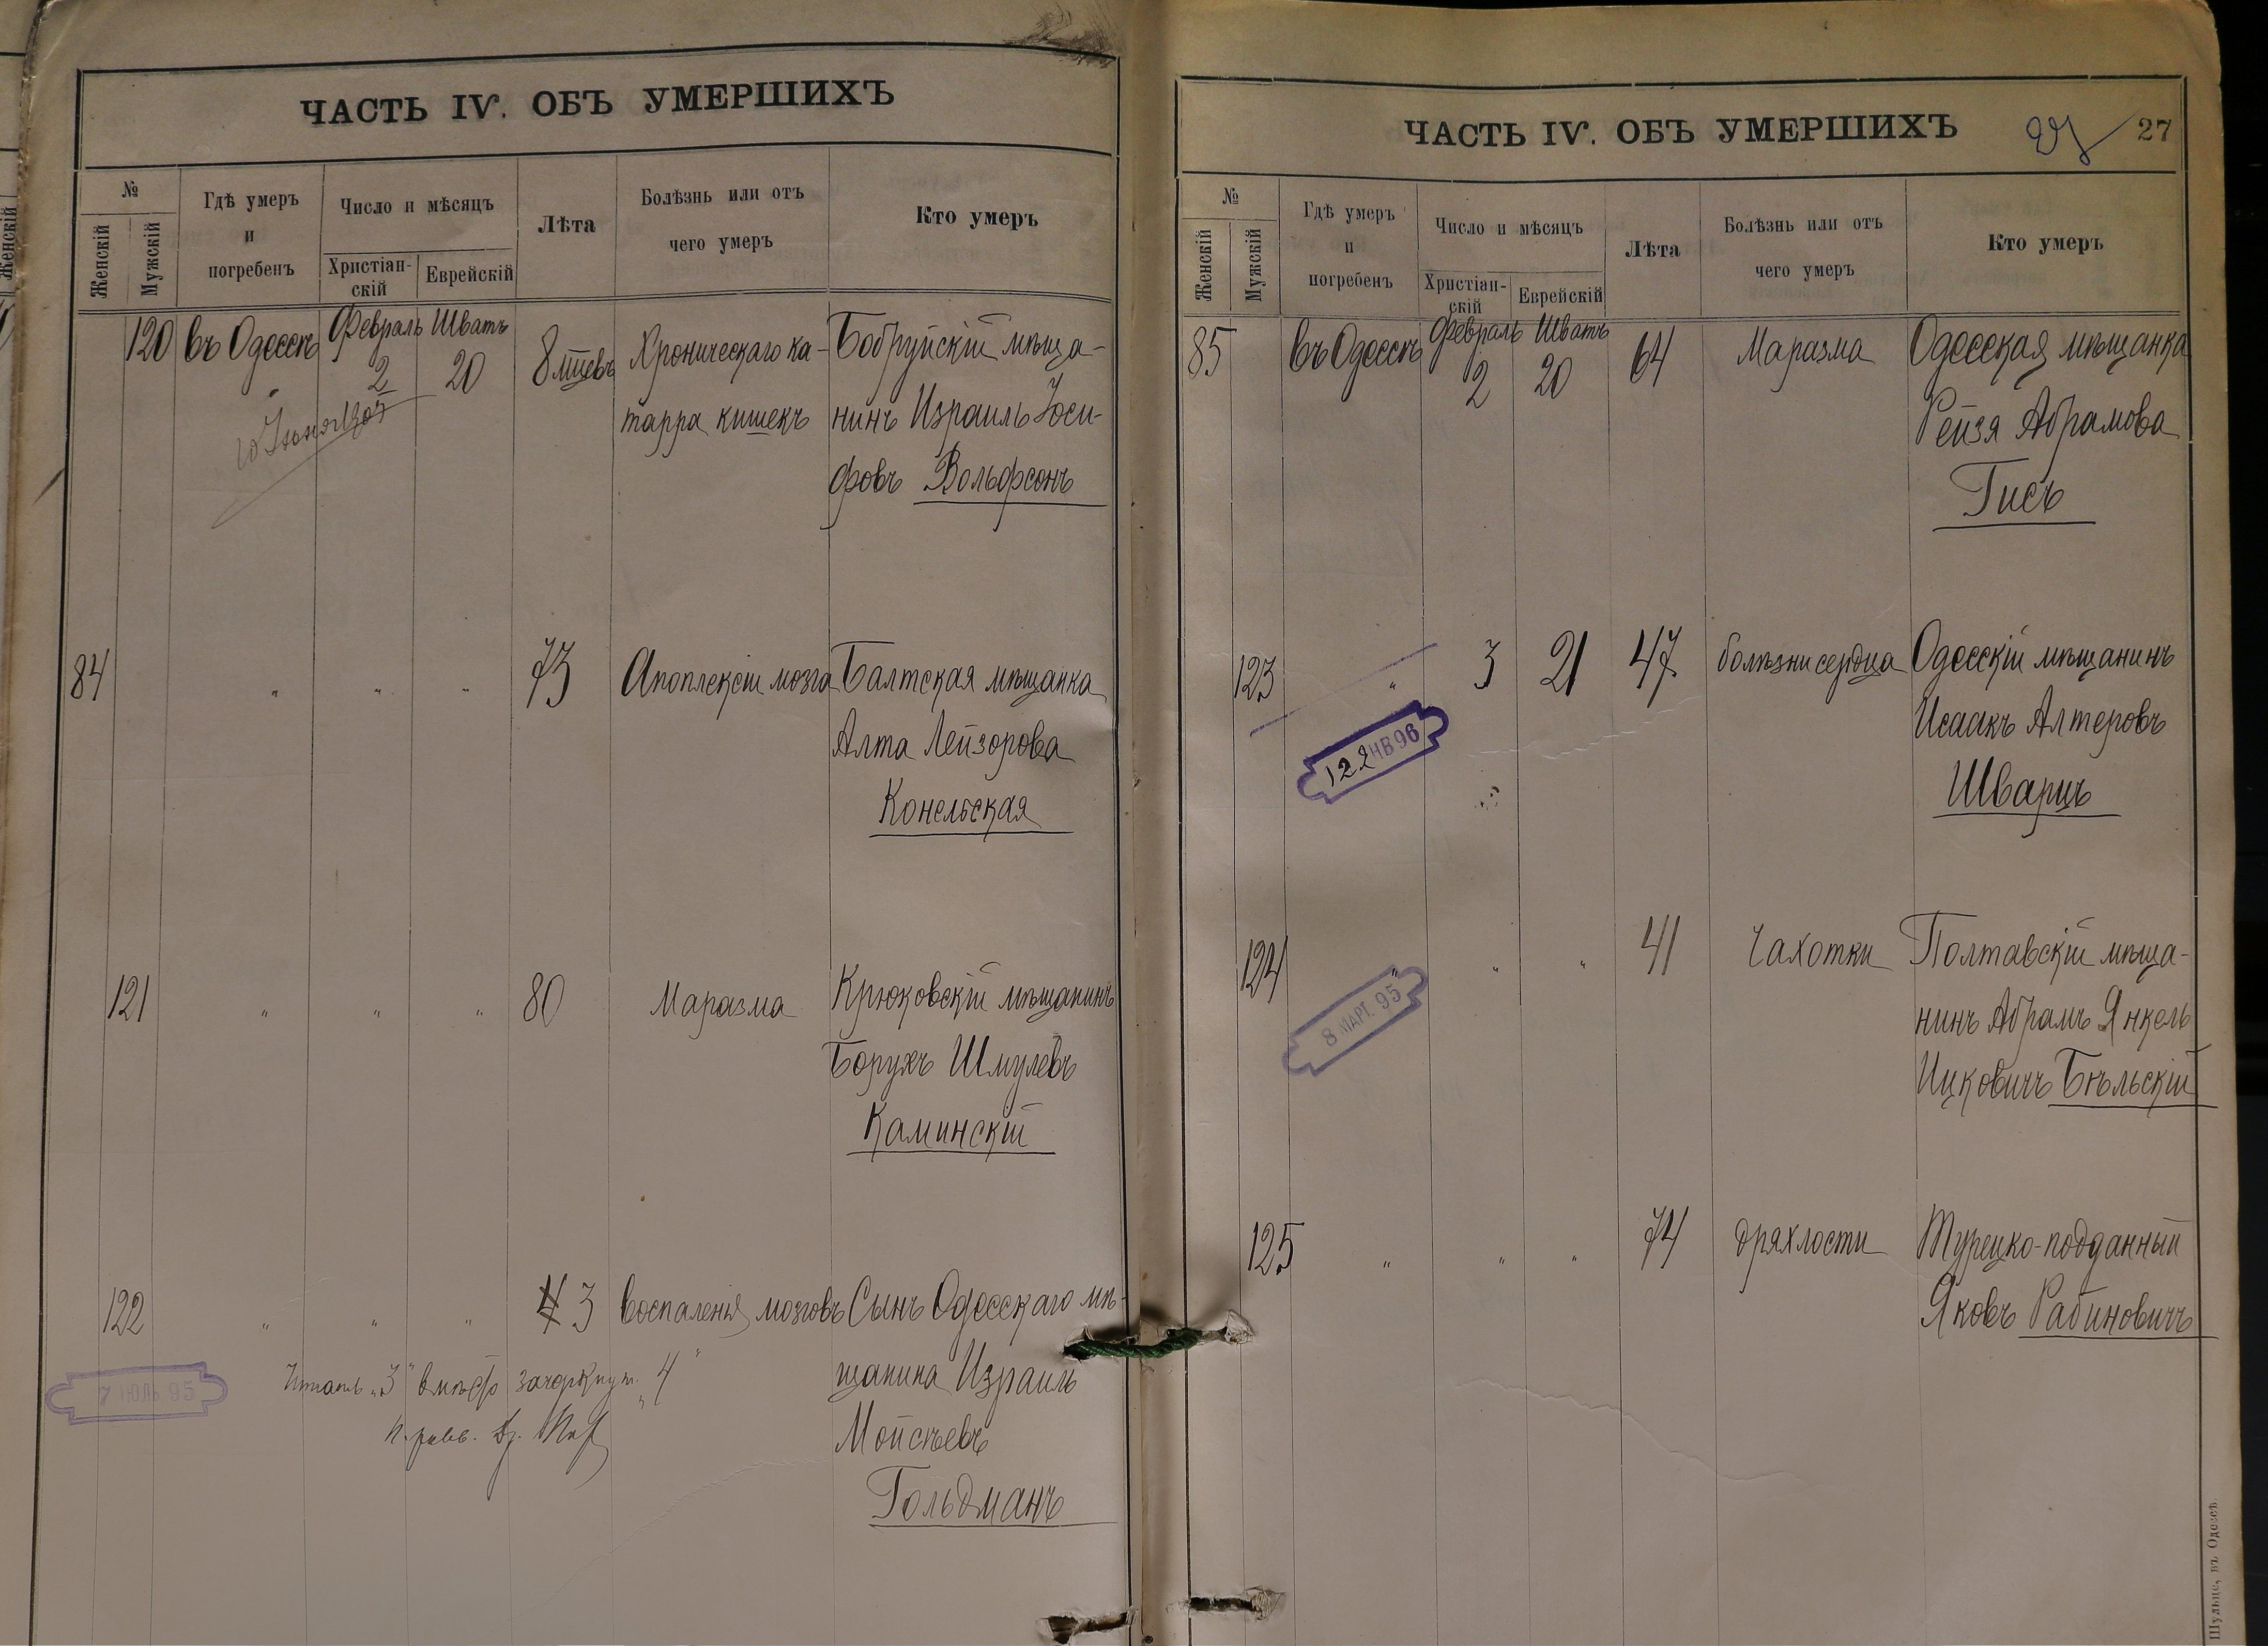 ЧАСТЬ IV. ОБЪ УМЕРШИХЪ
№
Женскій
Мужскій
Гдѣ умеръ
и
погребенъ
Число и мѣсяцъ
Христіан-
скій
Еврейскій
Лѣта
Болѣзнь или отъ
чего умеръ
Кто умеръ
120 въ Одессѣ Февраль 2 Шватъ 20 8 мцевъ Хроническаго ка- Бобруйскій мѣща-
тарра кишекъ нинъ Израиль Іоси-
фовъ Вольфсонъ
84 " " " 73 Апоплексіи мозга Балтская мѣщанка
Алта Лейзорова
Конельская
121 " " " 80 Маразма Крюковскій мѣщанинъ
Борухъ Шмулевъ
Каминскій
122 " " " 4 3 воспаленія мозговъ Сынъ Одесскаго мѣ-
щанина Израиль
Мойсѣевъ
Гольдманъ
7 ІЮЛЬ 95
Читать „3" вмѣсто зачеркнут. „4"
ЧАСТЬ IV. ОБЪ УМЕРШИХЪ
27 27
№
Женскій
Мужскій
Гдѣ умеръ
и
погребенъ
Число и мѣсяцъ
Христіан-
скій
Еврейскій
Лѣта
Болѣзнь или отъ
чего умеръ
Кто умеръ
85 въ Одессѣ Февраль 2 Шватъ 20 64 Маразма Одесская мѣщанка
Рейзя Абрамова
Гисъ
123 " 3 21 47 болѣзни сердца Одесскій мѣщанинъ
Исаакъ Алтеровъ
Шварцъ
124 " " " 41 Чахотки Полтавскій мѣща-
нинъ Абрамъ Янкель
Ицковичъ Бѣльскій
8 МАРТ. 95
125 " " " 74 дряхлости Турецко-подданный
Яковъ Рабиновичъ
Шульце, въ Одессѣ.